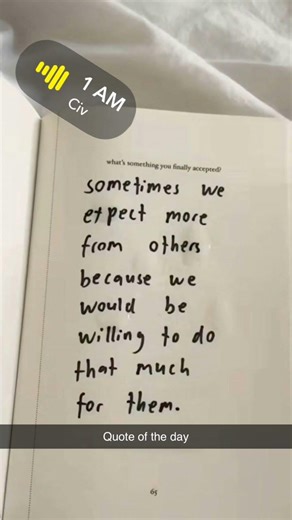 1 AM
Civ
what's something you finally accepted?
sometimes we
expect more
from others
because we
would be
willing to do
that much
for them.
Quote of the day
65